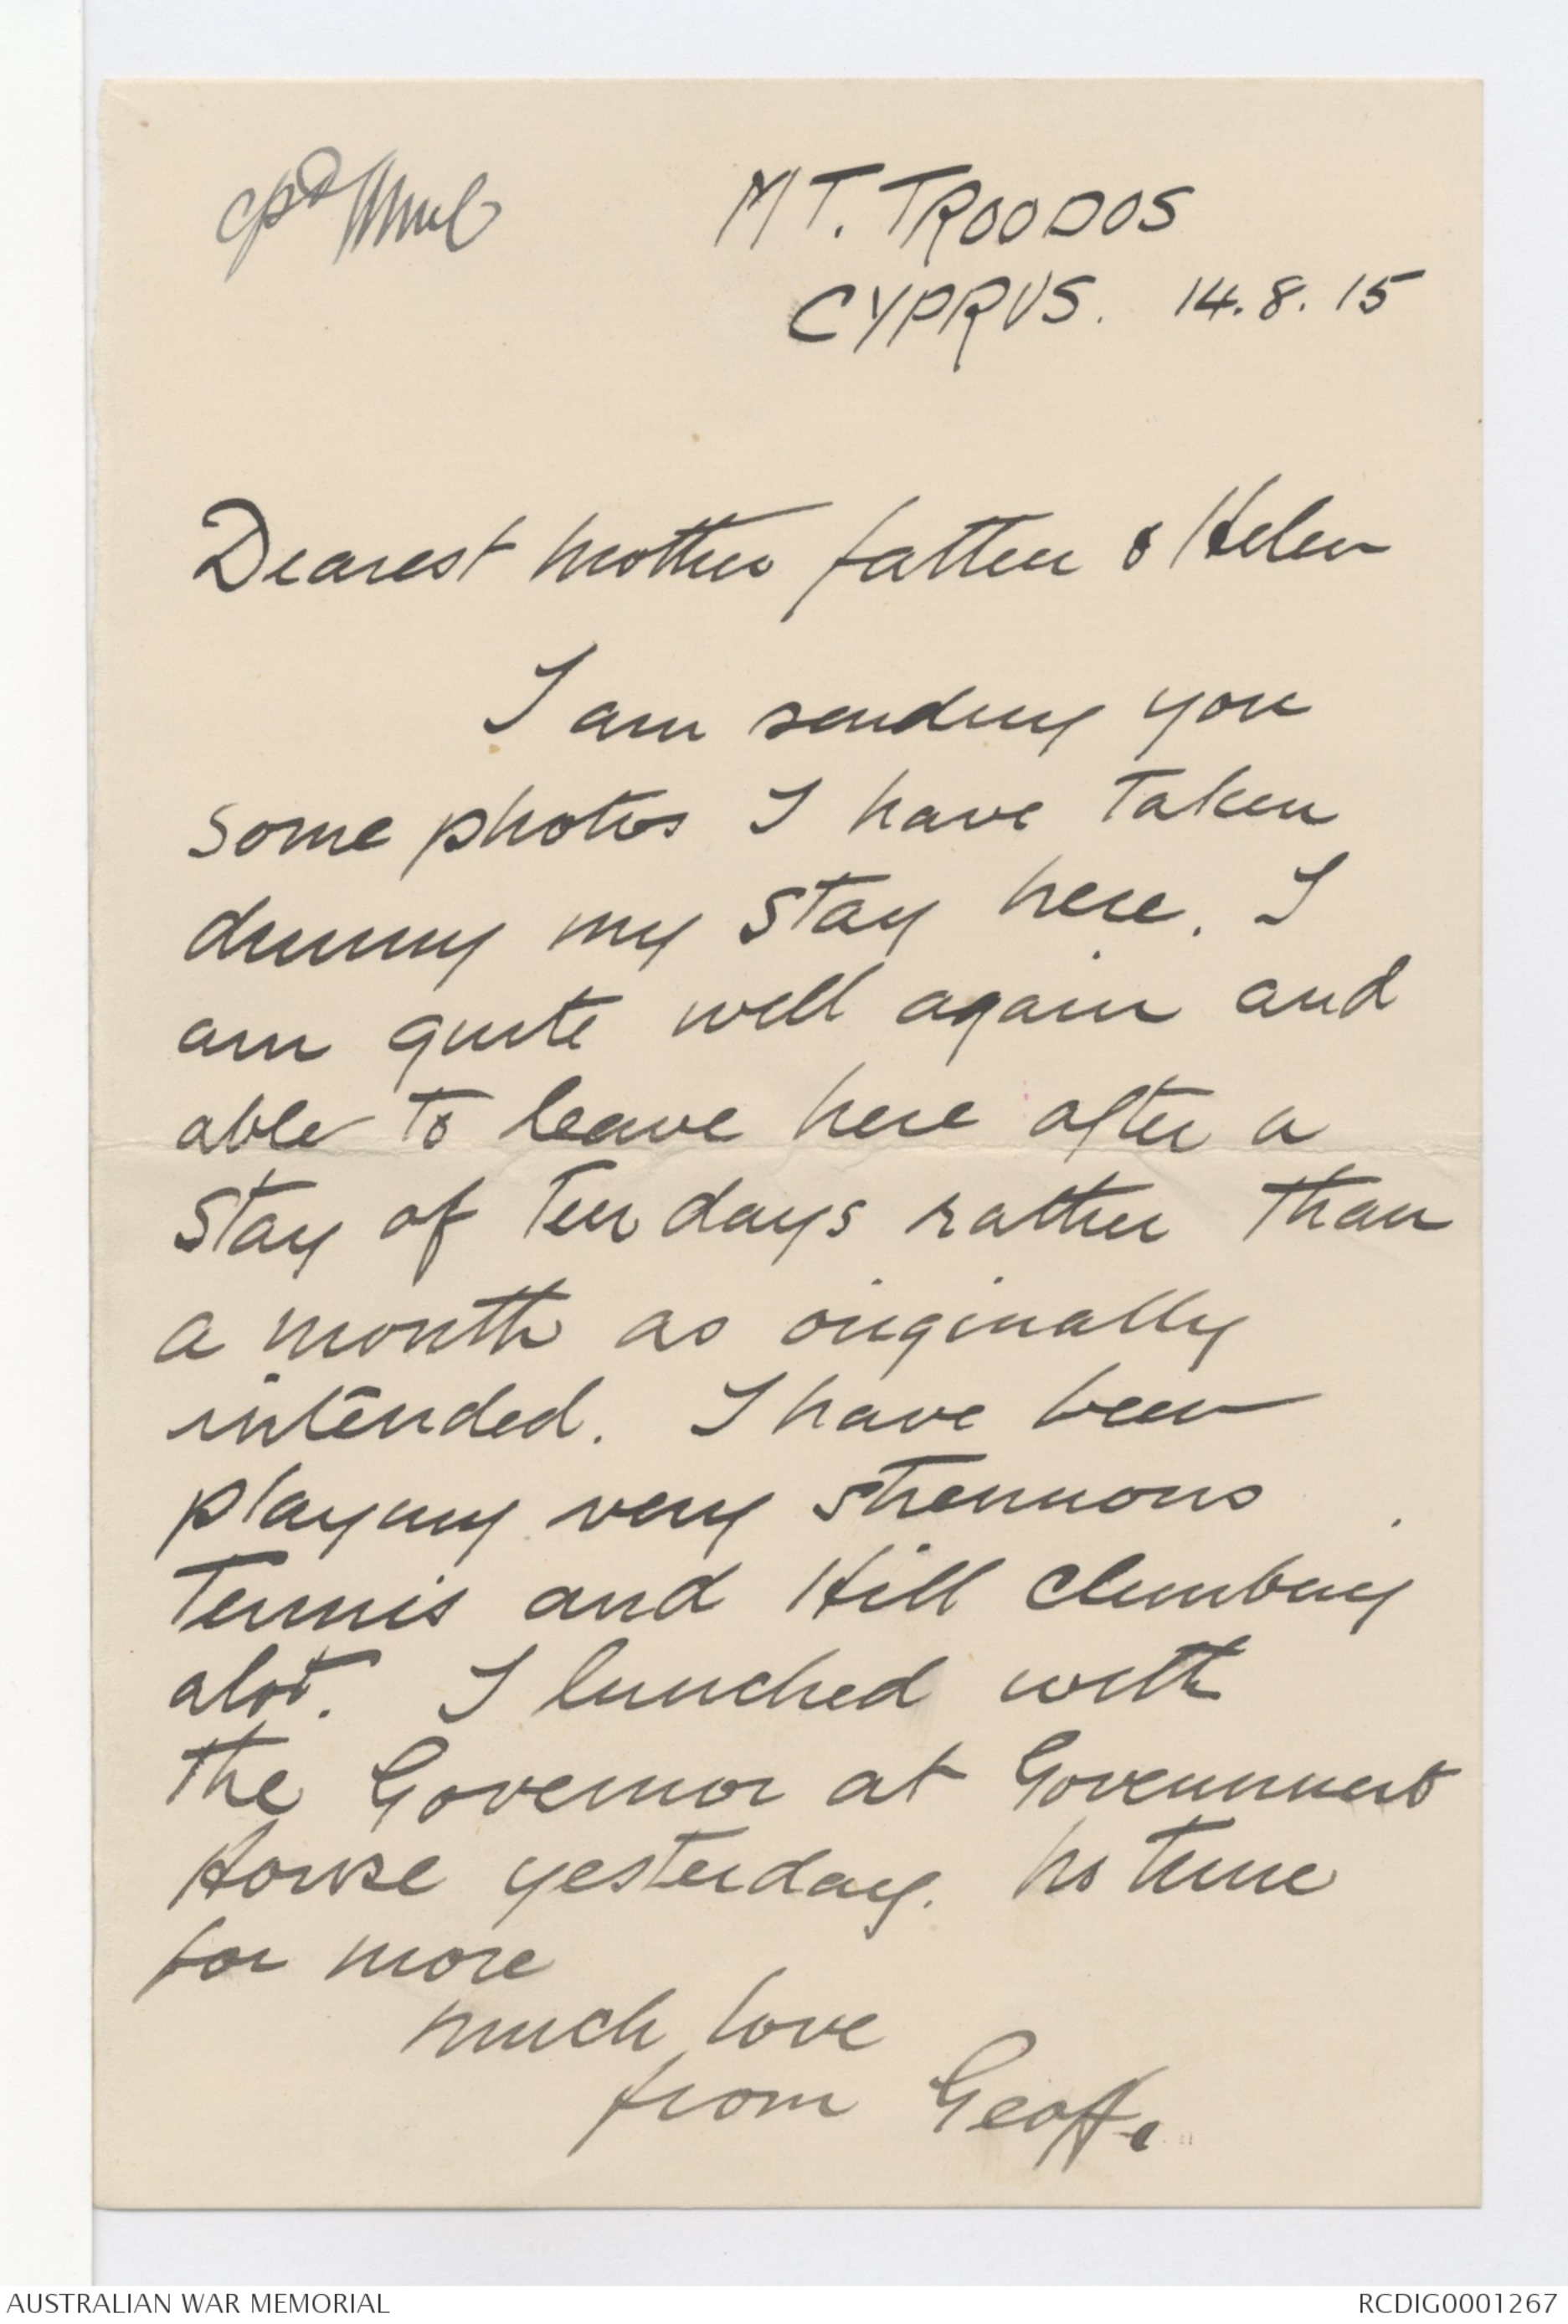 MT. TROODOS
CYPRUS. 14.8.15
Dearest Mother father & Helen
I am sending you
some photos I have taken
during my stay here. I
am quite well again and
able to leave here after a
stay of ten days rather than
a month as originally
intended. I have been
playing very strenuous
Tennis and Hill climbing
alot. I lunched with
the Governor at Government
House yesterday. No time
for more
much love
from Geoff.
AUSTRALIAN WAR MEMORIAL
RCDIG0001267